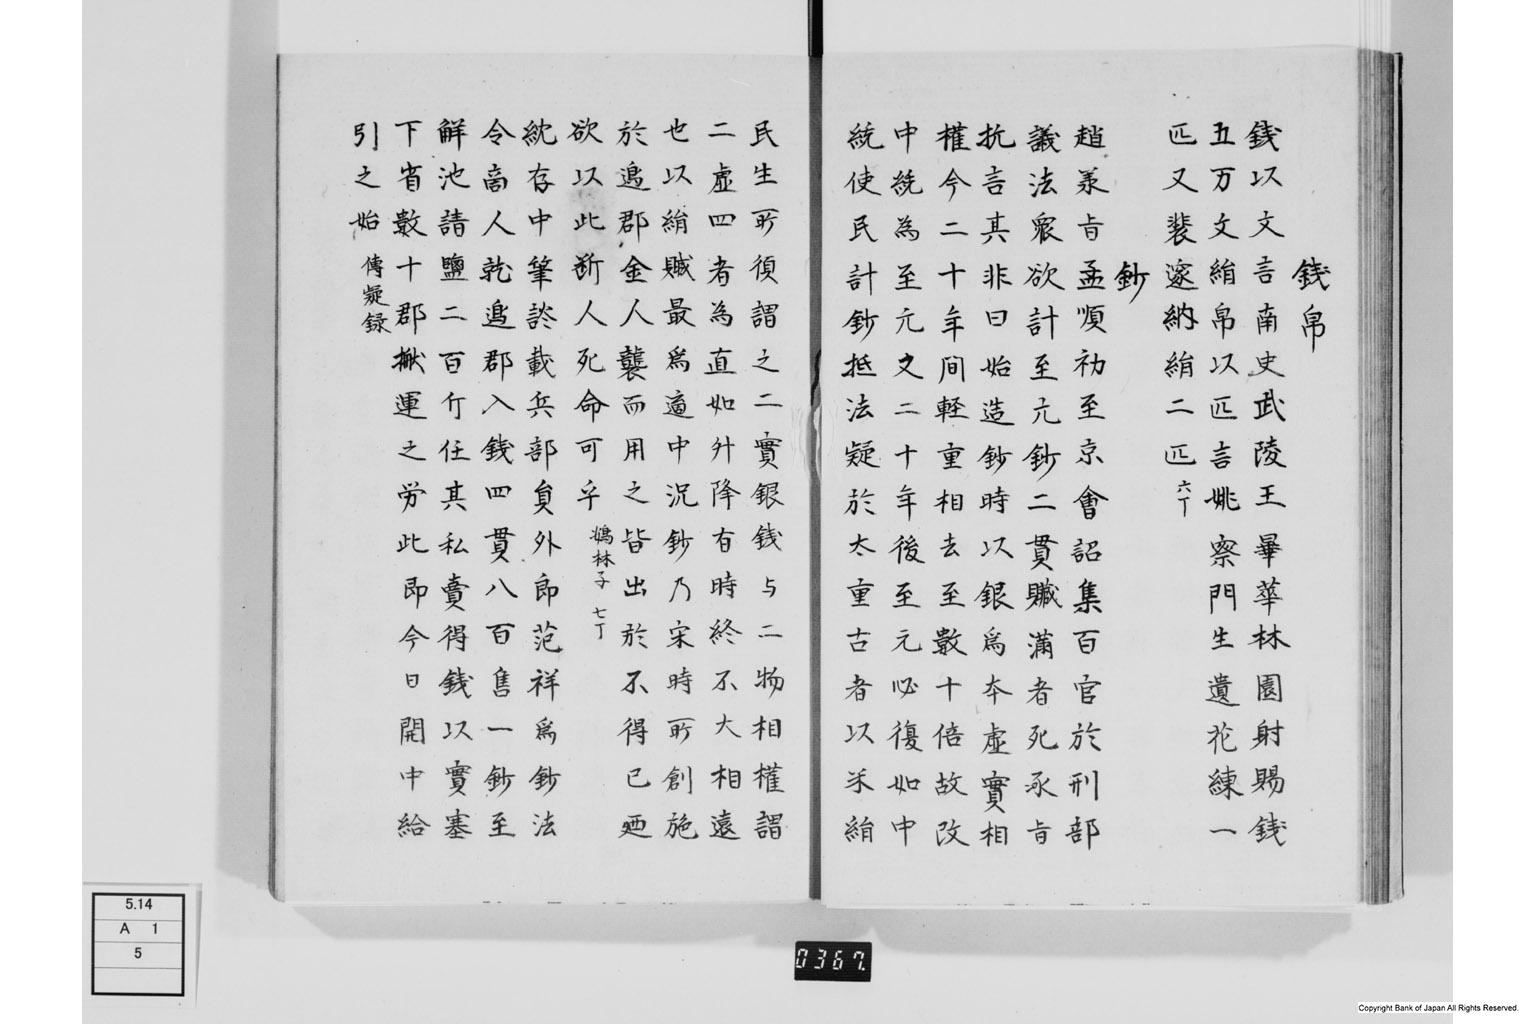 錢帛
錢以文言南史武陵王畢華林園射賜錢
五万文絹帛以匹言姚察門生遺花練一
匹又裴邃納絹二匹 六丁
鈔
趙羕㫖孟順初至京會詔集百官於刑部
議法衆欲計至元鈔二貫贓滿者死承㫖
抗言其非曰始造鈔時以銀爲夲虛實相
權今二十年间輕重相去至數十倍故改
中統為至元又二十年後至元必復如中
統使民計鈔抵法疑於太重古者以米絹
民生所須謂之二實銀錢与二物相權謂
二虛四者為直如升降有時終不大相遠
也以絹贓最爲適中況鈔乃宋時所創施
於邉郡金人襲而用之皆出於不得已廼
欲以此斷人死命可乎 鴂林子 七丁
統存中筆談載兵部負外郎范祥爲鈔法
令商人乾邉郡入錢四貫八百售一鈔至
解池請鹽二百斤任其私賣得錢以實塞
下省數十郡搬運之労此即今日開中給
引之始 傳疑録
5.14
A 1
5
0367
Copyright Bank of Japan All Rights Reserved.